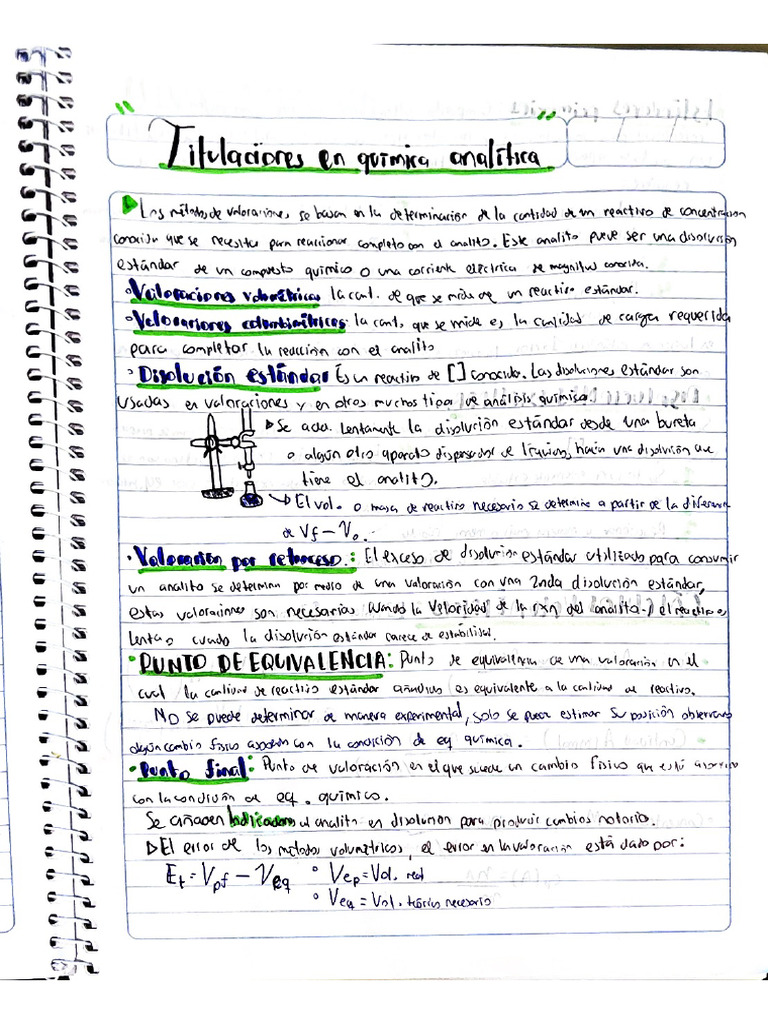 Titulaciones en química analítica
Los métodos de valoraciones, se basan en la determinación de la cantidad de un reactivo de concentracion
conocida que se necesita para reaccionar completo con el analito. Este analito puede ser una disolución
estándar de un compuesto químico o una corriente eléctrica de magnitud conocida.
• Valoraciones volumétricas la cant. de que se mide de un reactivo estándar.
• Valoraciones coloumbimétricas: la cant. que se mide es la cantidad de carga requerida
para completar la reacción con el analito
• Disolución estándar Es un reactivo de [ ] conocida. Las disoluciones estándar son
usadas en valoraciones y en otros muchos tipos de análisis químico.
▷ Se add. lentamente la disolución estándar desde una bureta
o algún otro aparato dispensador de líquidos, hacia una disolución que
tiene el analito.
→ El vol. o masa de reactivo necesario se determina a partir de la diferencia
de Vf – Vo.
• Valoración por retroceso: El exceso de disolución estándar utilizado para consumir
un analito se determina por medio de una valoración con una 2nda disolución estándar,
estas valoraciones son necesarias cuando la velocidad de la rxn del analito y el reactivo es
lenta, cuando la disolución estándar carece de estabilidad.
• PUNTO DE EQUIVALENCIA: Punto de equivalencia de una valoración en el
cual la cantidad de reactivo estándar añadido es equivalente a la cantidad de reactivo.
No se puede determinar de manera experimental, solo se puede estimar su posición observando
algún cambio físico asociado con la condición de eq química.
• Punto final: Punto de valoración en el que sucede un cambio físico que está asociado
con la condición de eq. químico.
Se añaden indicadores al analito en disolución para producir cambios notorio.
▷ El error de los métodos volumétricos, el error en la valoración está dado por:
Et = Vpf – Veq ° Vep = Vol. real
° Veq = Vol. teórico necesario